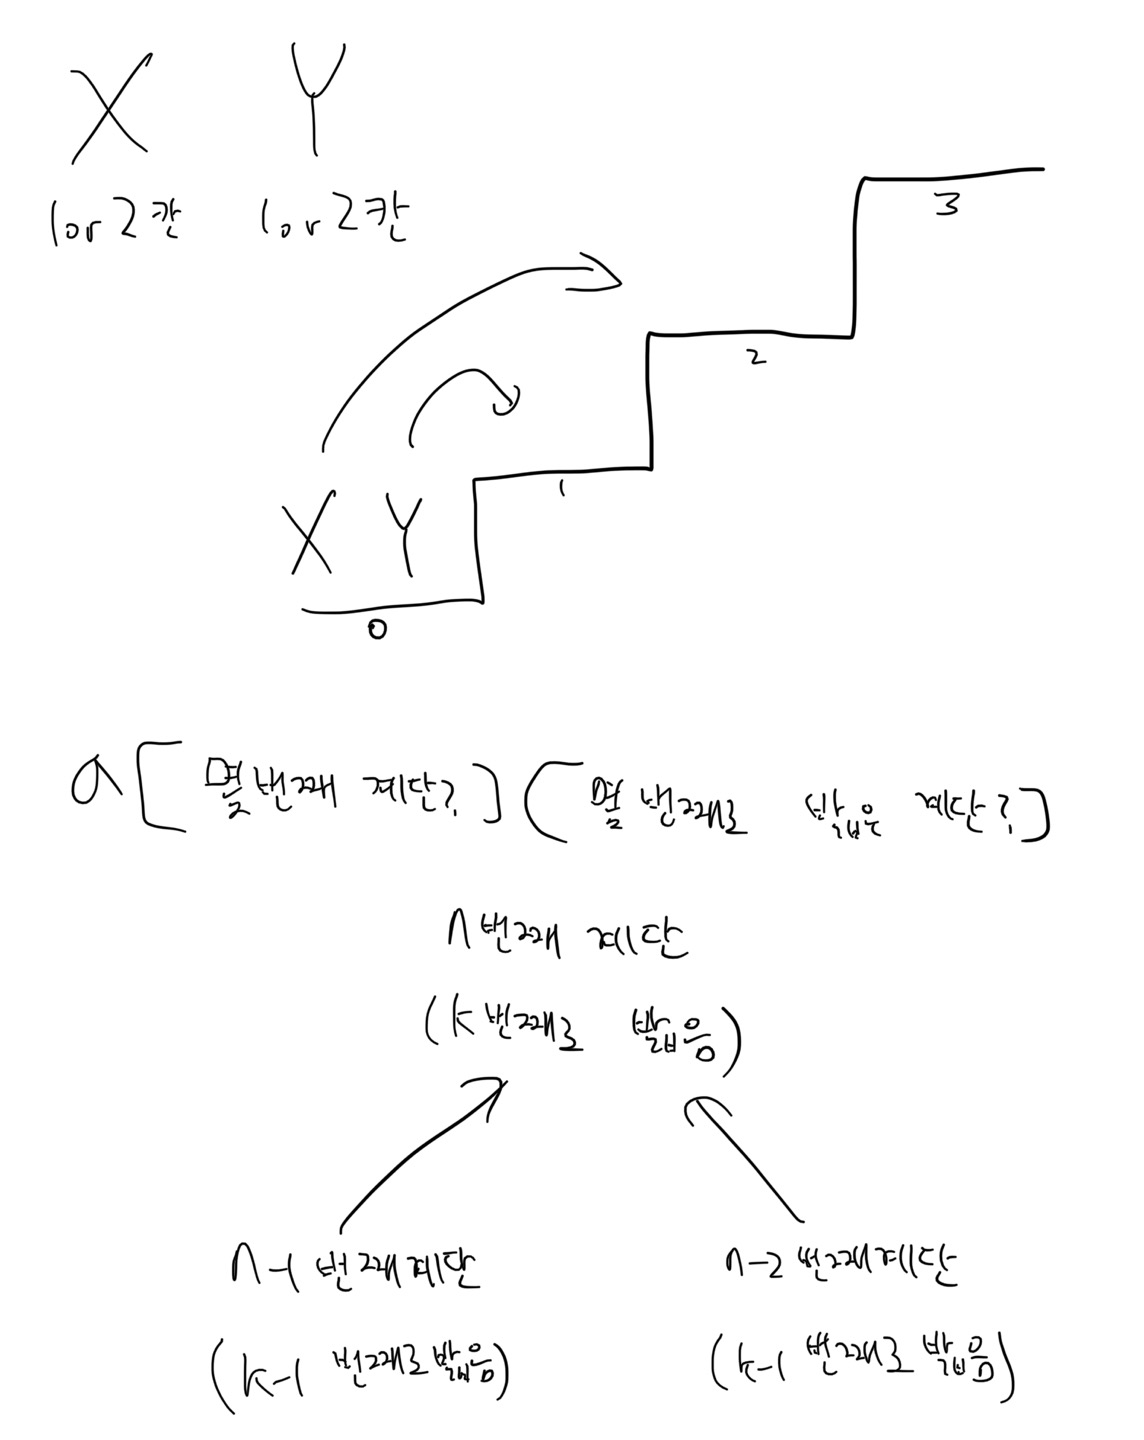 X Y
1 or 2칸 1 or 2칸
3
2
1
X Y
0
a[몇번째 계단?][몇 번째로 밟은 계단?]
n번째 계단
(k번째로 밟음)
n-1번째계단 n-2번째계단
(k-1 번째로밟음) (k-1 번째로 밟음)